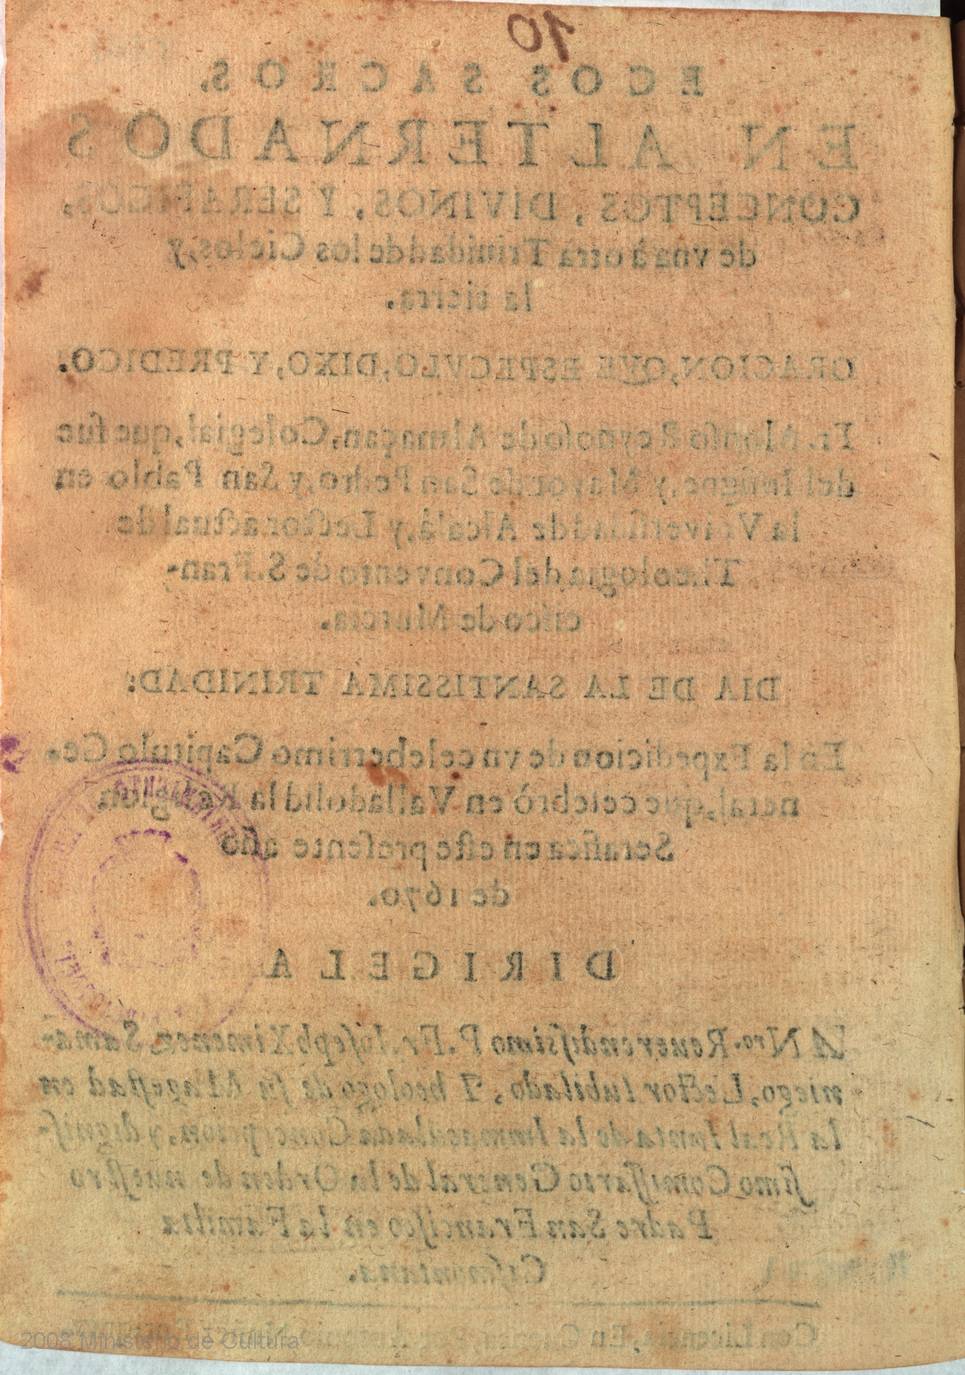 10
ECOS SACROS,
EN ALTERNADOS
CONCEPTOS, DIVINOS, Y SERAFICOS,
de vna à otra Trinidad de los Cielos, y
la tierra.
ORACION, QVE ESPECVLÒ, DIXO, Y PREDICO.
Fr. Alonso Reynoso de Almaçan, Colegial, que fue
del Insigne, y Mayor de San Pedro, y San Pablo en
la Vniversidad de Alcalà, y Lector actual de
Theologia del Convento de S. Fran-
cisco de Murcia.
DIA DE LA SANTISSIMA TRINIDAD:
En la Expedicion de vn celeberrimo Capitulo Ge-
neral, que celebrò en Valladolid la Religion
Serafica en este presente año
de 1670.
DIRIGELA
A Nro. Reuerendissimo P. Fr. Ioseph Ximenez Sama-
niego, Lector Iubilado, Theologo de su Magestad en
la Real Iunta de la Immaculada Concepcion, y dignis-
simo Comissario General de la Orden de nuestro
Padre San Francisco en la Familia
Cismontana.
Con Licencia, En Cuenca, Por Antonio
2008 Ministerio de Cultura